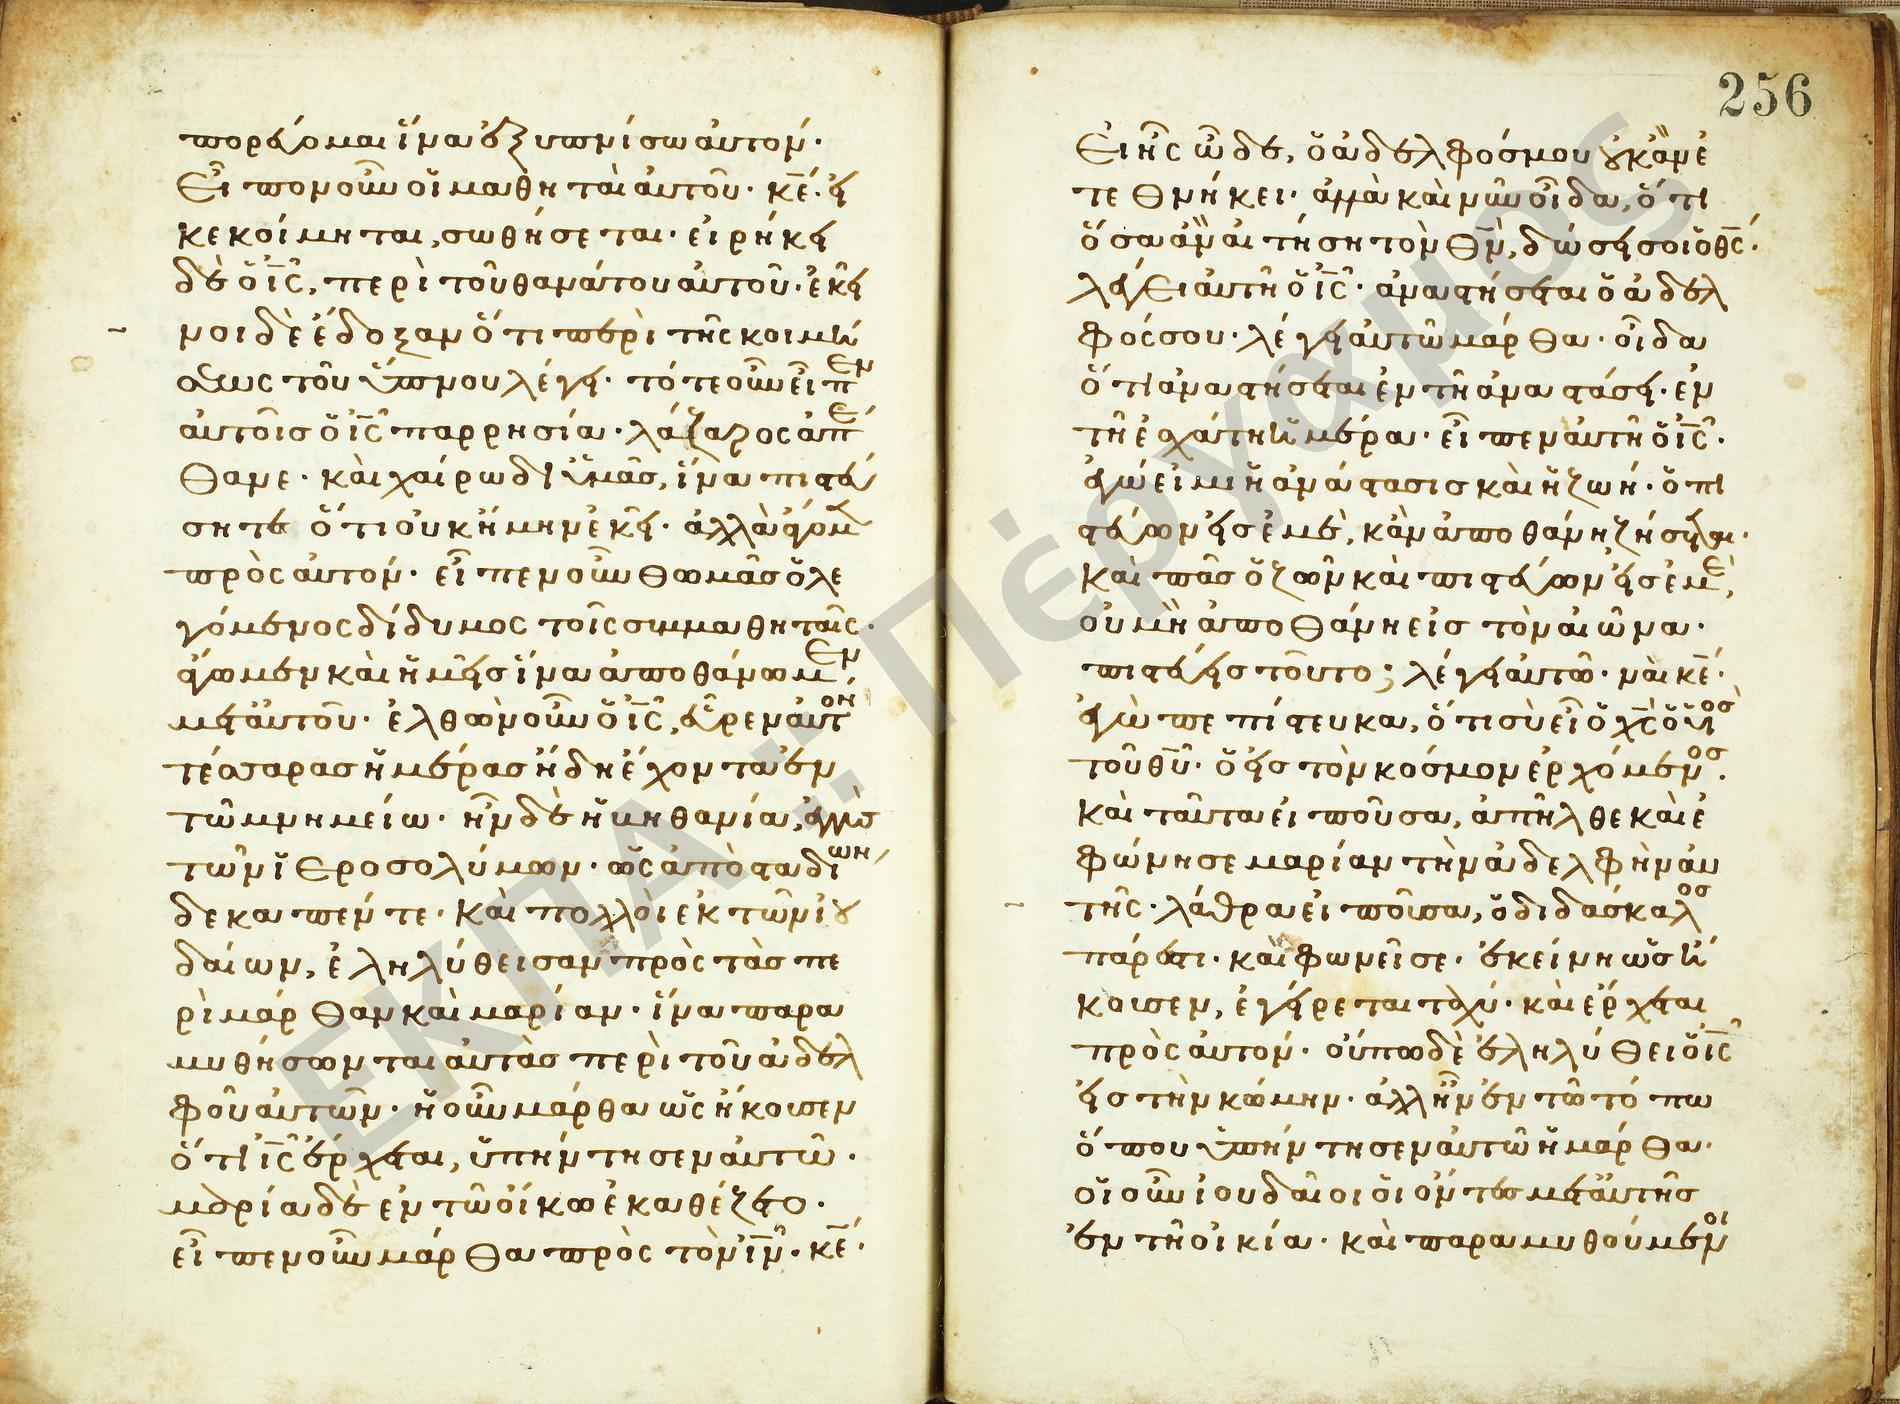 πορεύομαι ἵνα ἐξυπνίσω αὐτόν·
εἶπον οὖν οἱ μαθηταὶ αὐτοῦ· κ̅ε̅· εἰ
κεκοίμηται, σωθήσεται· εἰρήκει
δὲ ὁ ι̅ς̅, περὶ τοῦ θανάτου αὐτοῦ· ἐκεῖ
νοι δὲ ἔδοξαν ὅτι περὶ τῆς κοιμή
σεως τοῦ ὕπνου λέγει· τότε οὖν εἶπεν
αὐτοῖς ὁ ι̅ς̅ παρρησία· λάζαρος ἀπέ
θανε· καὶ χαίρω δι ὑμᾶς, ἵνα πιστεύ
σητε ὅτι οὐκ ἤμην ἐκεῖ· ἀλλὰ ἄγωμεν
πρὸς αὐτόν· εἶπεν οὖν θωμᾶς ὁ λε
γόμενος δίδυμος τοῖς συμμαθηταῖς·
ἄγωμεν καὶ ἡμεῖς ἵνα ἀποθάνωμεν
μετ αὐτοῦ· ἐλθὼν οὖν ὁ ι̅ς̅, εὗρεν αὐτὸν
τέσσαρας ἡμέρας ἤδη ἔχοντα ἐν
τῶ μνημείω· ἦν δὲ ἡ βηθανία, ἐγγὺς
τῶν ἱεροσολύμων· ὡς ἀπὸ σταδίων
δεκαπέντε· καὶ πολλοὶ ἐκ τῶν ἰου
δαίων, ἐληλύθεισαν πρὸς τὰς πε
ρὶ μάρθαν καὶ μαρίαν· ἵνα παρα
μυθήσωνται αὐτὰς περὶ τοῦ ἀδελ
φοῦ αὐτῶν· ἡ οὖν μάρθα ὡς ἤκουσεν
ὅτι ι̅ς̅ ἔρχεται, ὑπήντησεν αὐτῶ·
μαρία δὲ ἐν τῶ οἴκω ἐκαθέζετο·
εἶπεν οὖν μάρθα πρὸς τὸν ι̅ν̅· κ̅ε̅·
256
εἰ ἦς ὧδε, ὁ ἀδελφός μου οὐκ ἂν ἐ
τεθνήκει· ἀλλὰ καὶ νῦν οἶδα, ὅτι
ὅσα ἂν αἰτήση τὸν θ̅ν̅, δώσει σοι ὁ θ̅ς̅·
λέγει αὐτῆ ὁ ι̅ς̅· ἀναστήσεται ὁ ἀδελ
φός σου· λέγει αὐτῶ μάρθα· οἶδα
ὅτι ἀναστήσεται ἐν τῆ ἀναστάσει· ἐν
τῆ ἐσχάτη ἡμέρα· εἶπεν αὐτῆ ὁ ι̅ς̅·
ἐγώ εἰμι ἡ ἀνάστασις καὶ ἡ ζωή· ὁ πι
στεύων εἰς ἐμὲ, κἂν ἀποθάνη ζήσεται·
καὶ πᾶς ὁ ζῶν καὶ πιστεύων εἰς ἐμὲ,
οὐ μὴ ἀποθάνη εἰς τὸν αἰῶνα·
πιστεύεις τοῦτο; λέγει αὐτῶ· ναὶ κ̅ε̅·
ἐγὼ πεπίστευκα, ὅτι σὺ εἶ ὁ χ̅ς̅ ὁ υἱὸς
τοῦ θ̅υ̅· ὁ εἰς τὸν κόσμον ἐρχόμενος·
καὶ ταῦτα εἰποῦσα, ἀπῆλθε καὶ ἐ
φώνησε μαρίαν τὴν ἀδελφὴν αὐ
τῆς· λάθρα εἰποῦσα, ὁ διδάσκαλος
πάρεστι· καὶ φωνεῖ σε· ἐκείνη ὡς ἤ
κουσεν, ἐγείρεται ταχύ· καὶ ἔρχεται
πρὸς αὐτόν· οὔπω δὲ ἐληλύθει ὁ ι̅ς̅
εἰς τὴν κώμην· ἀλλ ἦν ἐν τῶ τόπω
ὅπου ὑπήντησεν αὐτῶ ἡ μάρθα·
οἱ οὖν ἰουδαῖοι οἱ ὄντες μετ αὐτῆς
ἐν τῆ οἰκία· καὶ παραμυθούμενοι
ΕΚΠΑ .: Πέργαμος